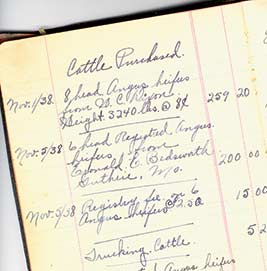 Cattle Purchased.
Nov. 1/38. 8 head Angus heifers
from W. C.
Weight 3240 lbs. @ 8¢ 259 20
Nov. 5/38 6 head Registed Angus
heifers from
Edonald E. Bedsworth
Guthrie, Mo. 200 00
Nov. 5/38 Registery fee on 6
Angus heifers @ 2.50 15 00
Trucking Cattle. 5
Angus heifers